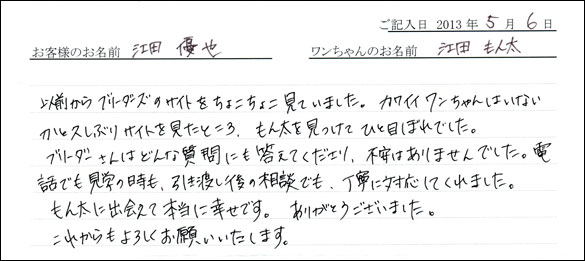 ご記入日 2013 年 5 月 6 日
お客様のお名前 江田 優也 ワンちゃんのお名前 江田 もん太
以前からブリーダーズのサイトをちょこちょこ見ていました。カワイイワンちゃんはいない
かと久しぶりサイトを見たところ、もん太を見つけてひと目ぼれでした。
ブリーダーさんはどんな質問にも答えてくださり、不安はありませんでした。電
話でも見学の時も、引き渡し後の相談でも、丁寧に対応してくれました。
もん太に出会えて本当に幸せです。ありがとうございました。
これからもよろしくお願いいたします。